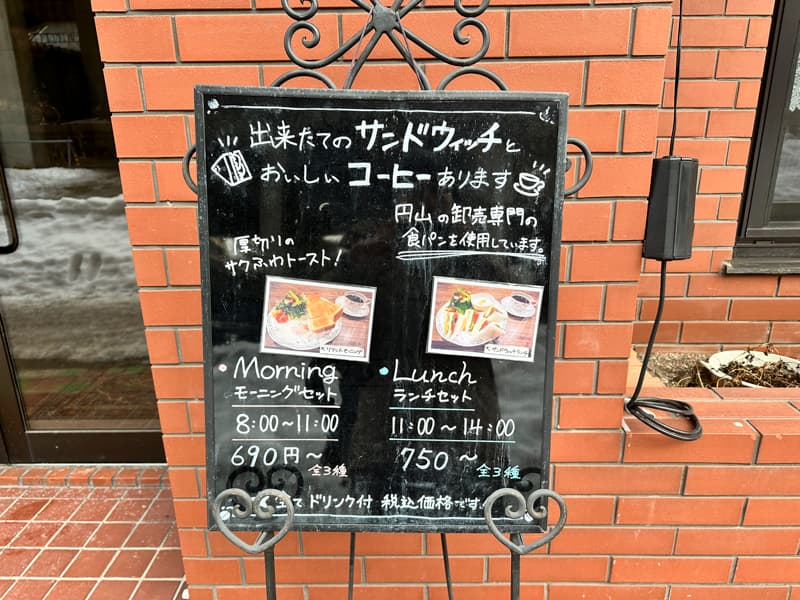 出来たての サンドウィッチと
おいしい コーヒー あります
円山の卸売専門の
食パンを使用しています。
厚切りの
サクふわトースト!
Morning
モーニングセット
8:00~11:00
690円~
全3種
Lunch
ランチセット
11:00~14:00
750~
全3種
全て ドリンク付 税込価格です。